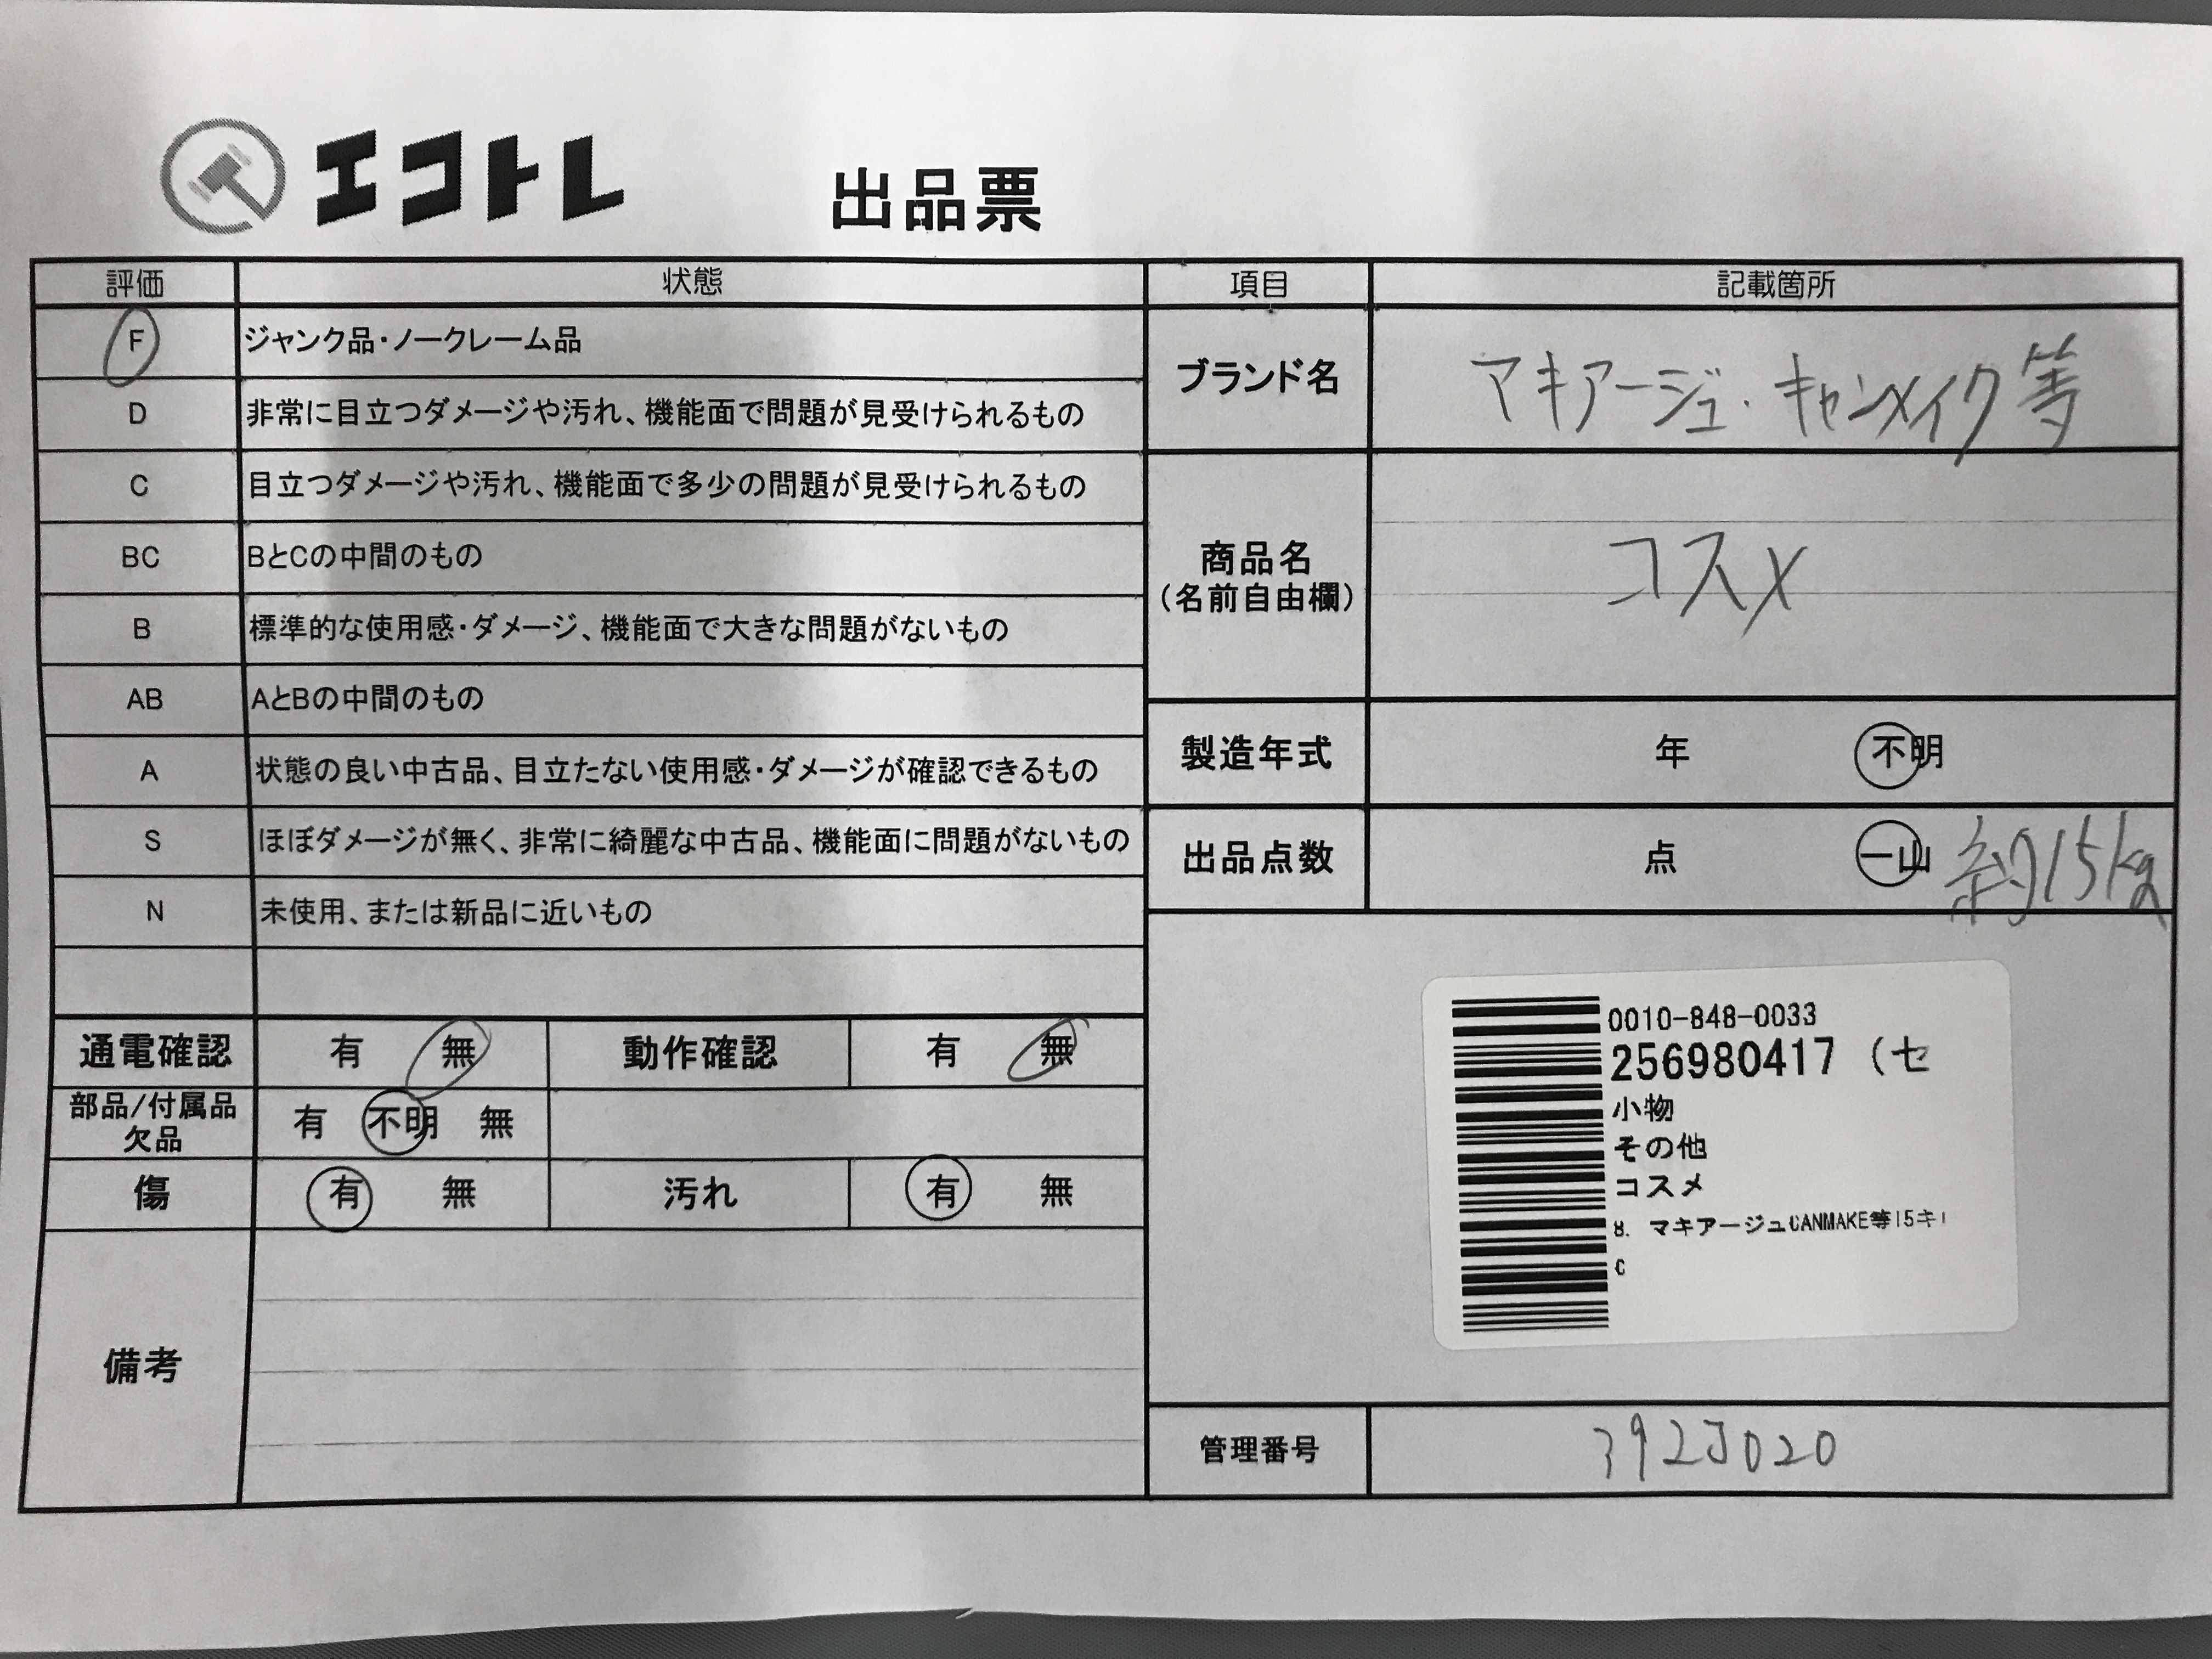 エコトレ 出品票
評価 状態
F ジャンク品・ノークレーム品
D 非常に目立つダメージや汚れ、機能面で問題が見受けられるもの
C 目立つダメージや汚れ、機能面で多少の問題が見受けられるもの
BC BとCの中間のもの
B 標準的な使用感・ダメージ、機能面で大きな問題がないもの
AB AとBの中間のもの
A 状態の良い中古品、目立たない使用感・ダメージが確認できるもの
S ほぼダメージが無く、非常に綺麗な中古品、機能面に問題がないもの
N 未使用、または新品に近いもの
通電確認 有 無 動作確認 有 無
部品/付属品
欠品 有 不明 無
傷 有 無 汚れ 有 無
備考
項目 記載箇所
ブランド名 マキアージュ・キャンメイク等
商品名
(名前自由欄) コスメ
製造年式 年 不明
出品点数 点 一山 約15kg
0010-848-0033
256980417 (セ
小物
その他
コスメ
8. マキアージュCANMAKE等15キ
C
管理番号 392J020